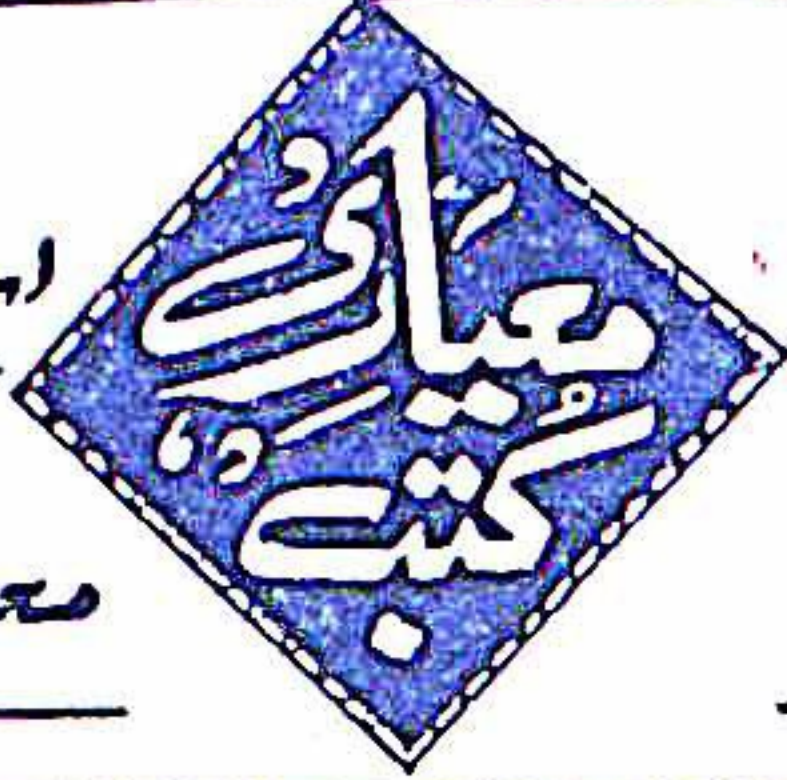 معیاری
کُتب